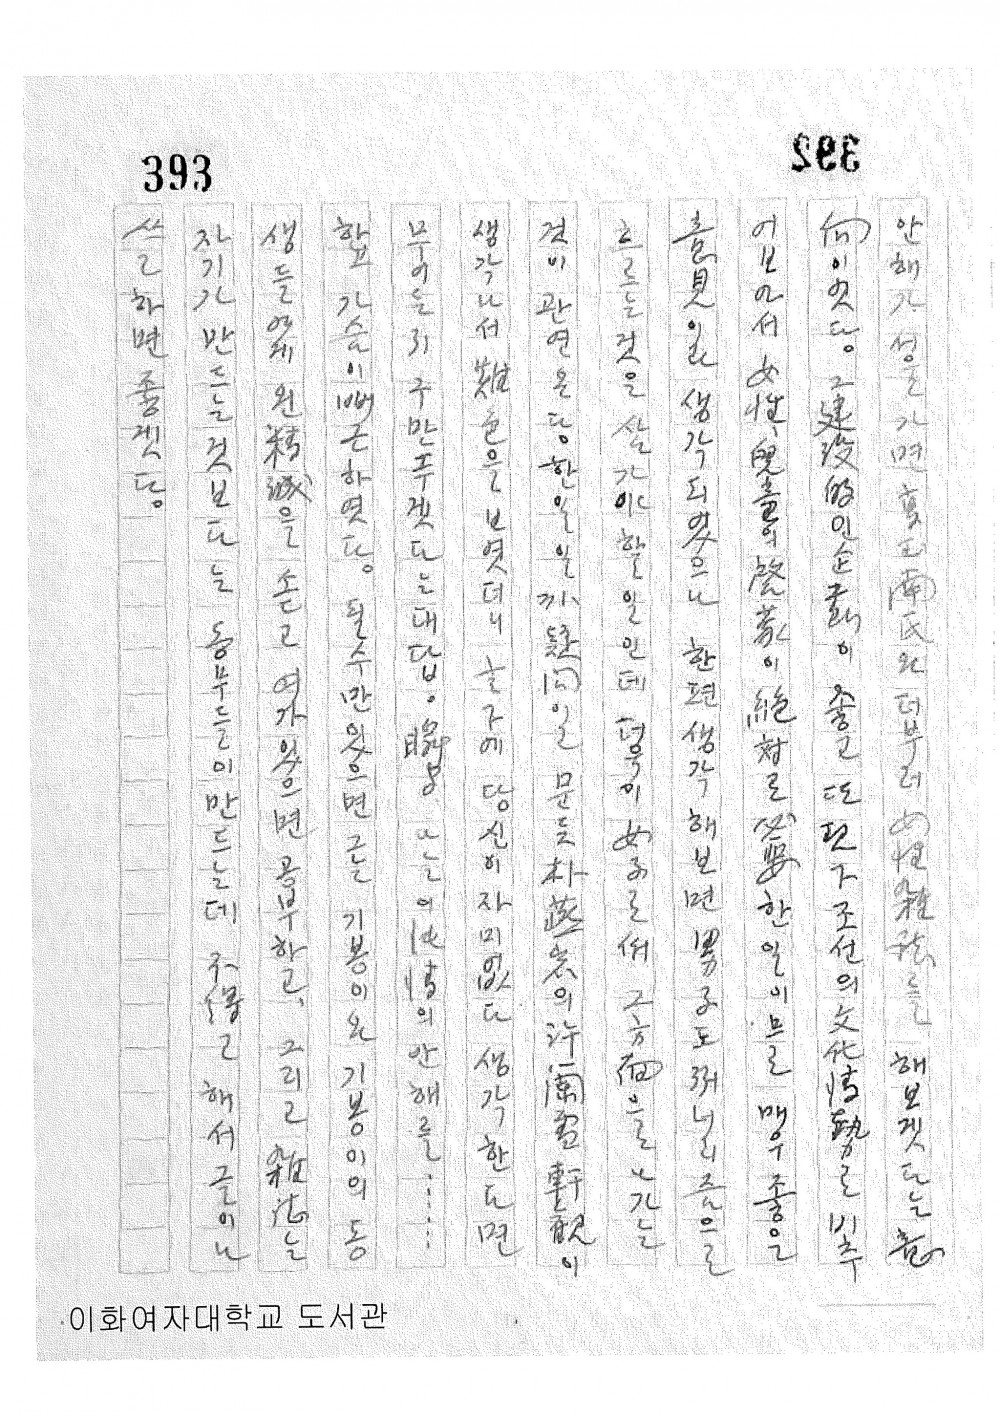 393
392
안해가 성돌가면 夏云南氏와 더부러 女性雜誌를 해보겟다는 意
向이엿다。 그 建設的인 企劃이 좋고 또 現下 조선의 文化情勢로 비추
어보아서 女性, 兒童의 啓蒙이 絶対로 必要한 일이므로 매우 좋은
意見이라 생각되엿으나 한편 생각해보면 男子도 쩌너리즘으로
흐르는 것을 삼가야할일인데 더욱이 女子로서 그 方面으로 나가는
것이 과연 온당한일일까 疑問일 문듯 朴
생각나서 難色을 보엿더니 글구에 당신이 자미없다 생각한다면
무어든지 구만두겟다는 대답。 나는 의 안해를……
학고 가슴이 뻐근하엿다。 될수만있으면 그는 기봉이와 기봉이의 동
생들에게 왼 精誠을 쏟고 여가있으면 공부하고, 그리고 雜誌는
자기가 만드는것보다는 동무들이 만드는데 해서 글이나
쓰고하면 좋겟다
이화여자대학교 도서관